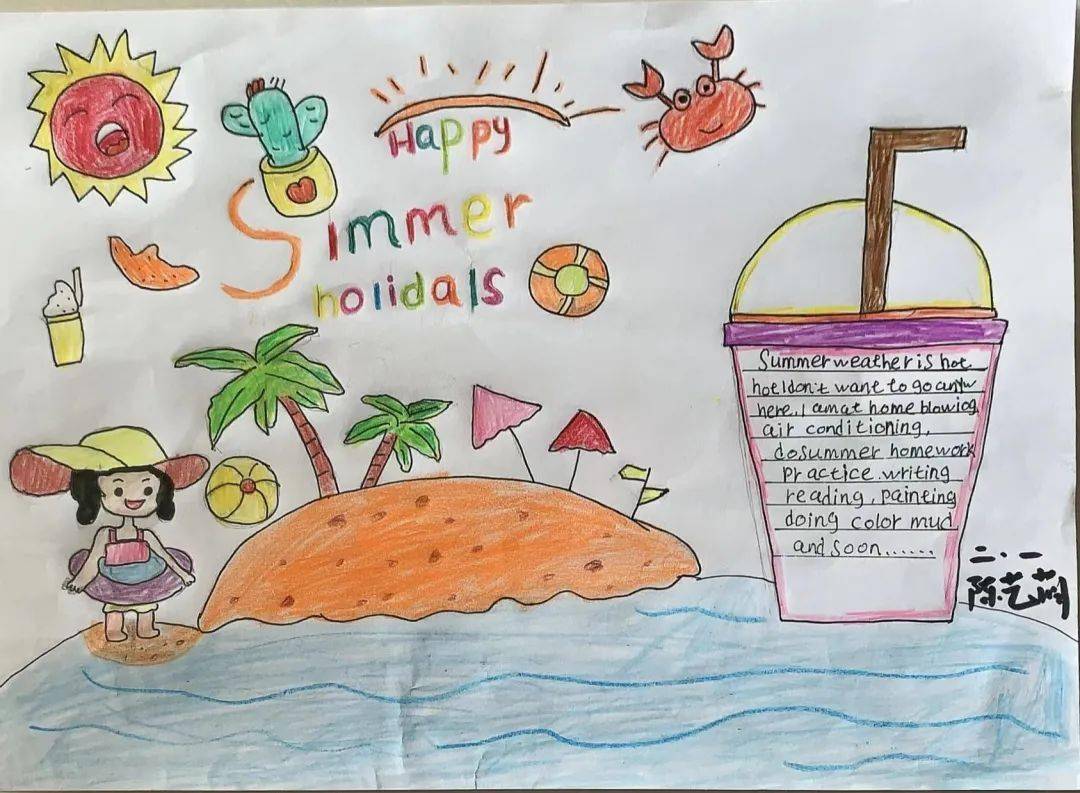 Happy
Simmer
holidals
Summer weather is hot
hot I don't want to go anyw
here. I am at home blowing
air conditioning,
do summer homework
practice writing
reading, painting
doing color mud
and soon......
二·一
陈艺